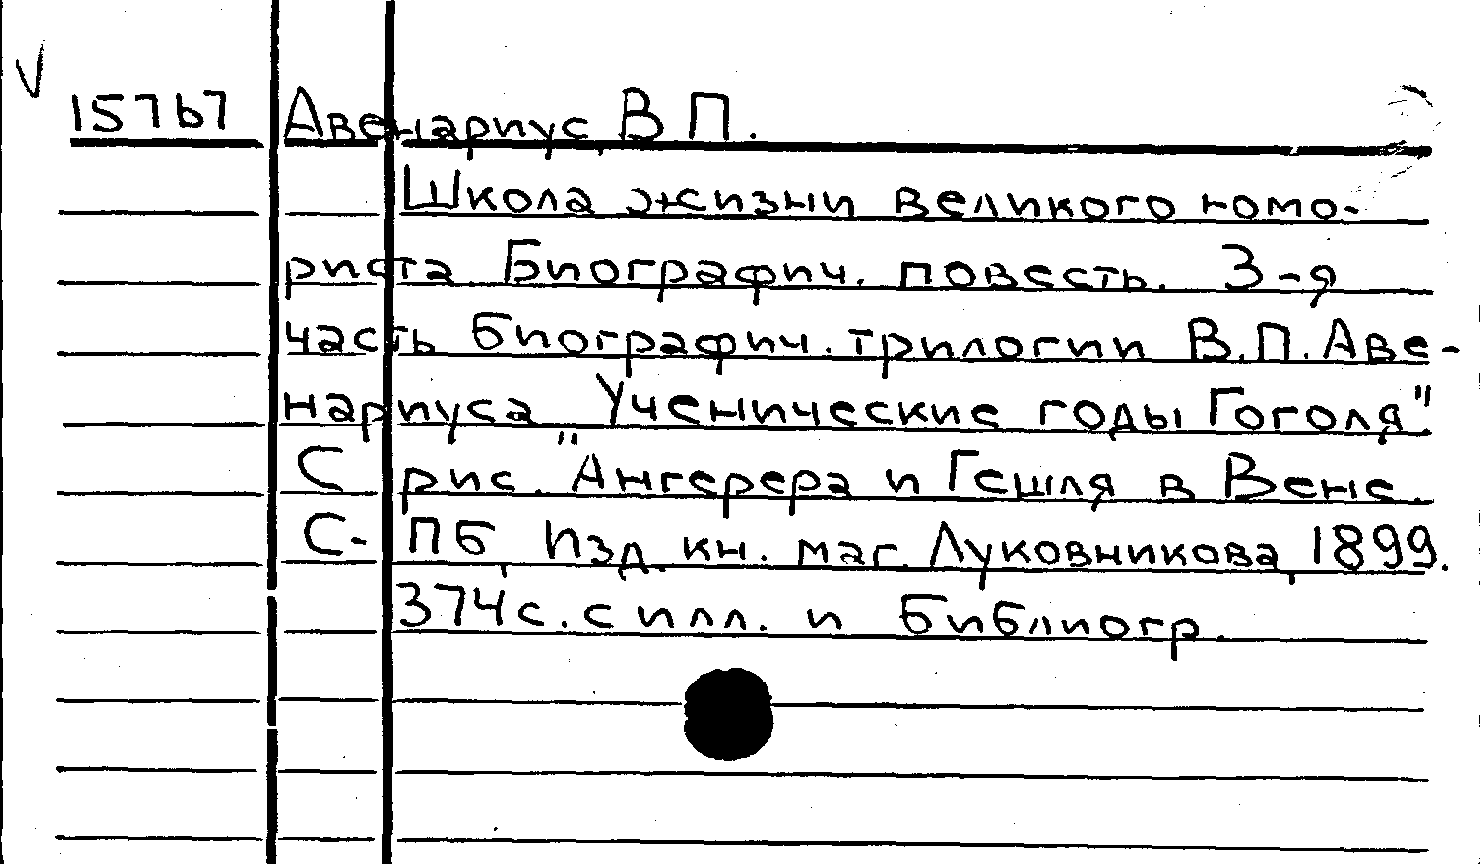 15767 Авенариус, В П.
Школа жизни великого юмо-
риста. Биографич. повесть. 3-я
часть биографич. трилогии В.П. Аве-
нариуса „Ученические годы Гоголя"
С рис. Ангерера и Гешля в Вене.
С-ПБ, Изд. кн. маг. Луковникова, 1899.
374 с. с илл. и библиогр.